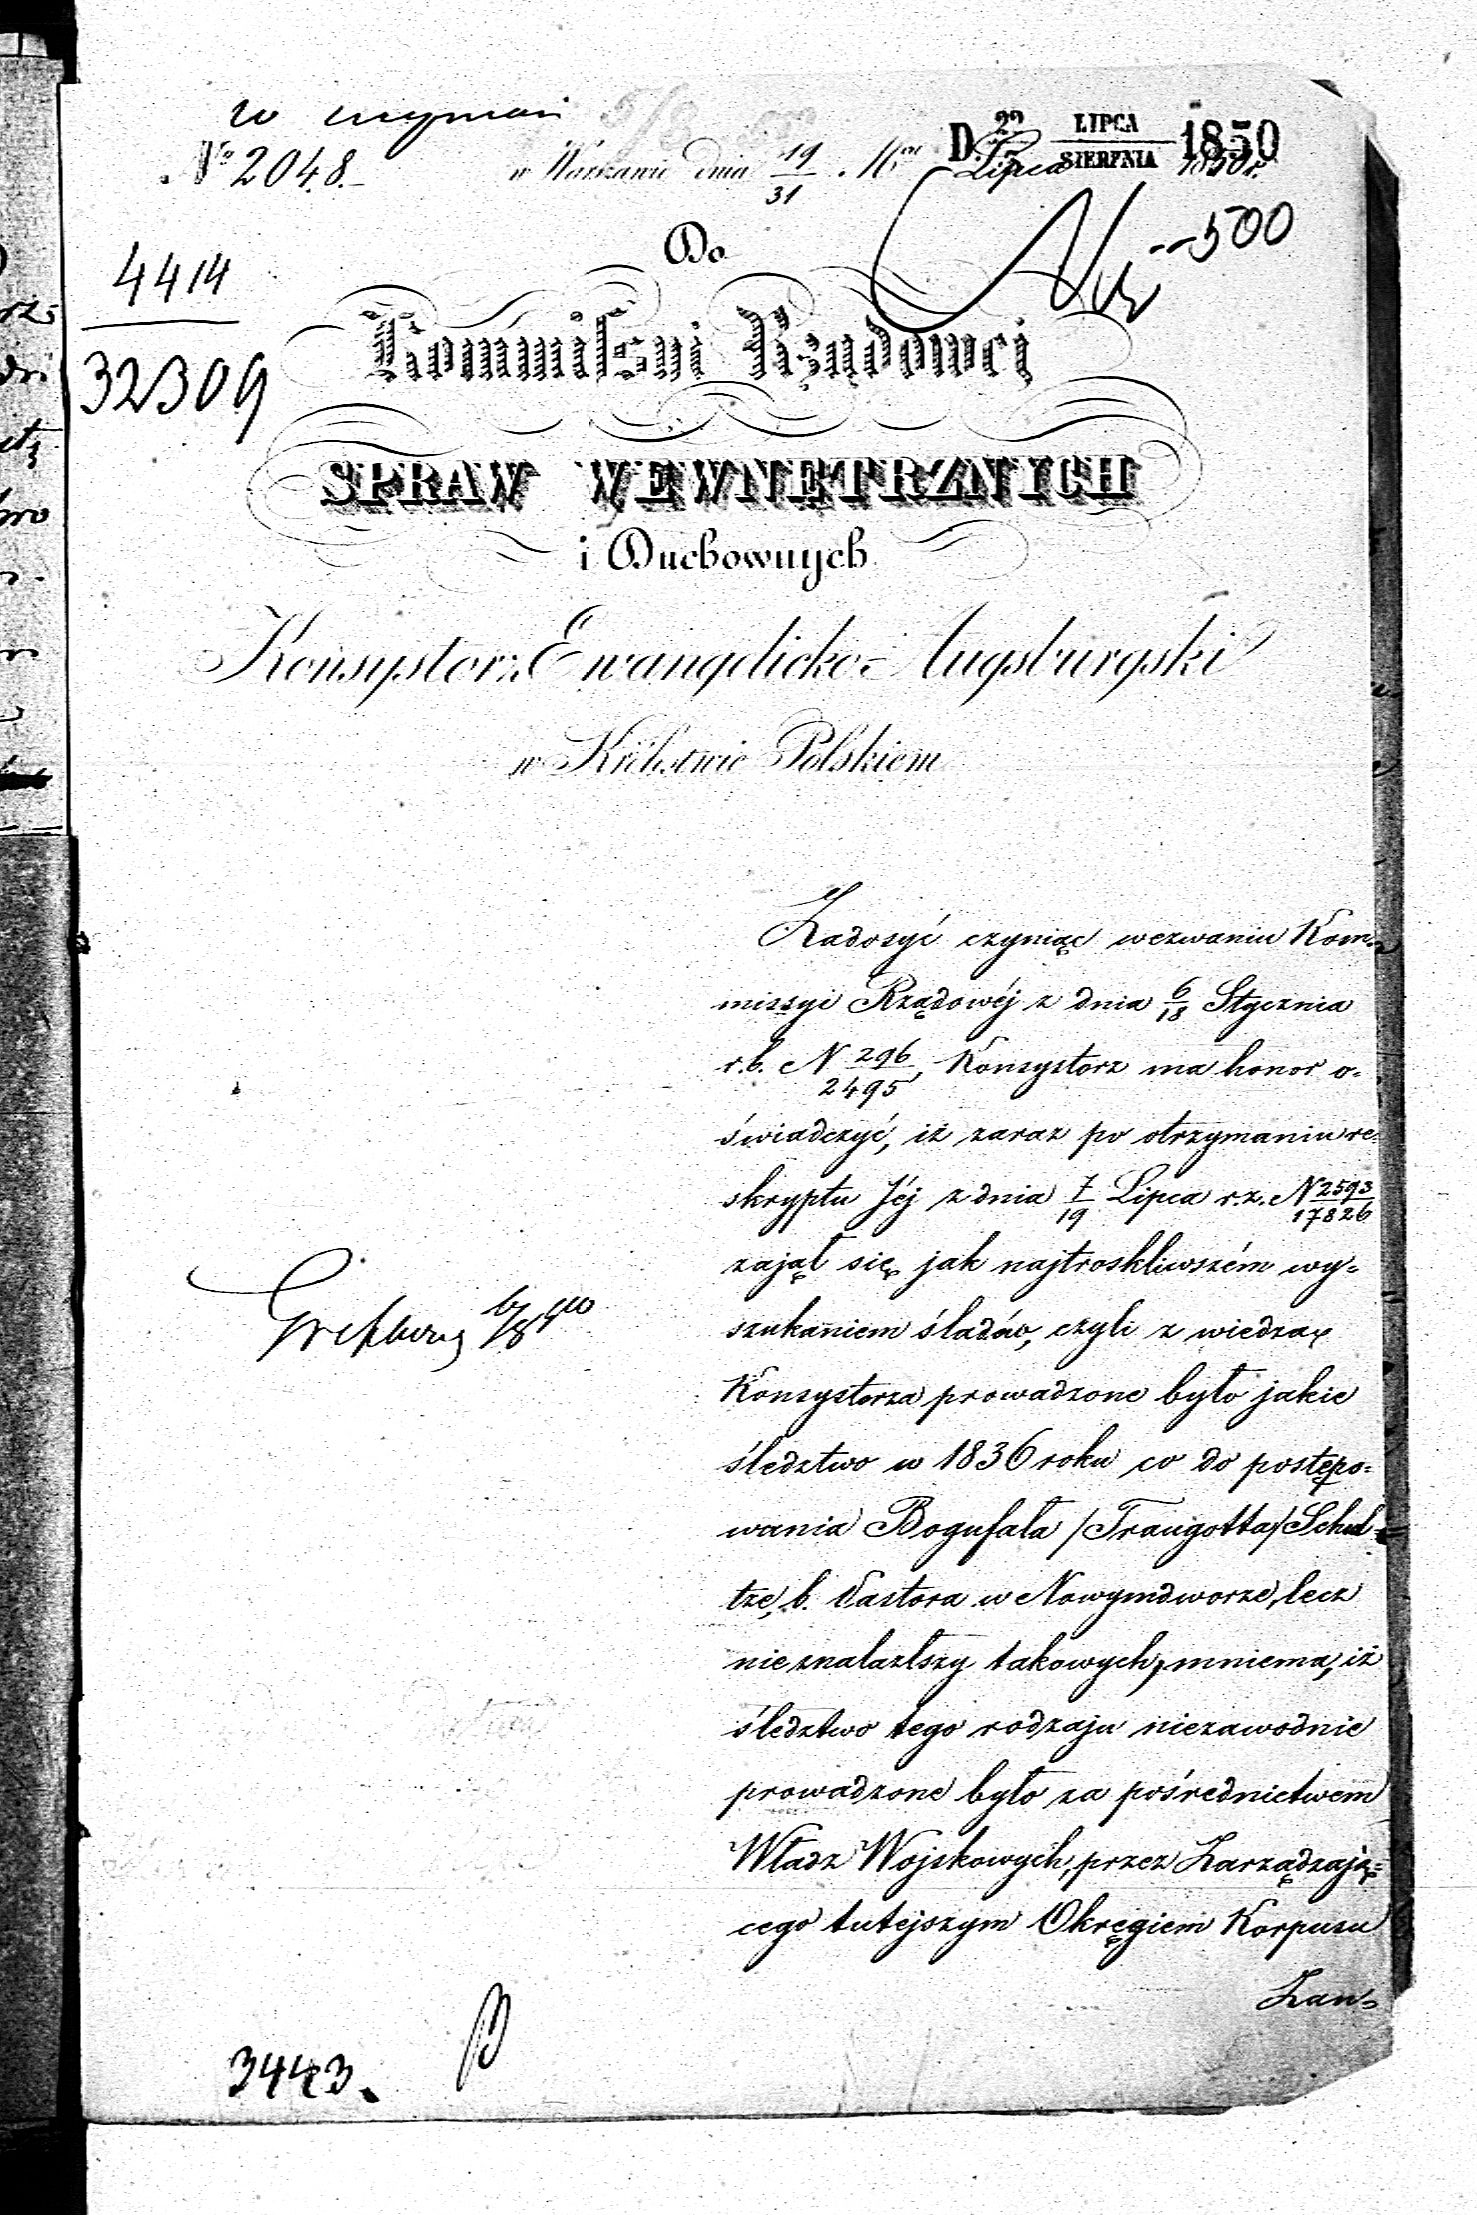 № 2048.
w Warszawie dnia 19/31 Lipca 1850 r.
D. 22 LIPCA / SIERPNIA 1850
500
4414
32309
Do
Kommissyi Rządowej
SPRAW WEWNĘTRZNYCH
i Duchownych
Konsystorz Ewangelicko-Augsburgski
w Królestwie Polskiem
Zadosyć czyniąc wezwaniu Kom=
missyi Rządowéj z dnia 6/18 Stycznia
r.b. N 296/2495, Konsystorz ma honor o=
świadczyć, iż zaraz po otrzymaniu re=
skryptu Jéj z dnia 7/19 Lipca r.z. N 2593/17826
zajął się jak najtroskliwszém wy=
szukaniem śladów, czyli z wiedzą
Konsystorza prowadzone było jakie
śledztwo w 1836 roku co do postępo=
wania Bogufała /Traugotta/ Schul=
tze, b. Pastora w Nowymdworze, lecz
nieznalazłszy takowych, mniema, iż
śledztwo tego rodzaju niezawodnie
prowadzone było za pośrednictwem
Władz Wojskowych, przez Zarządzają=
cego tutejszym Okręgiem Korpusu
Żan=
3443.